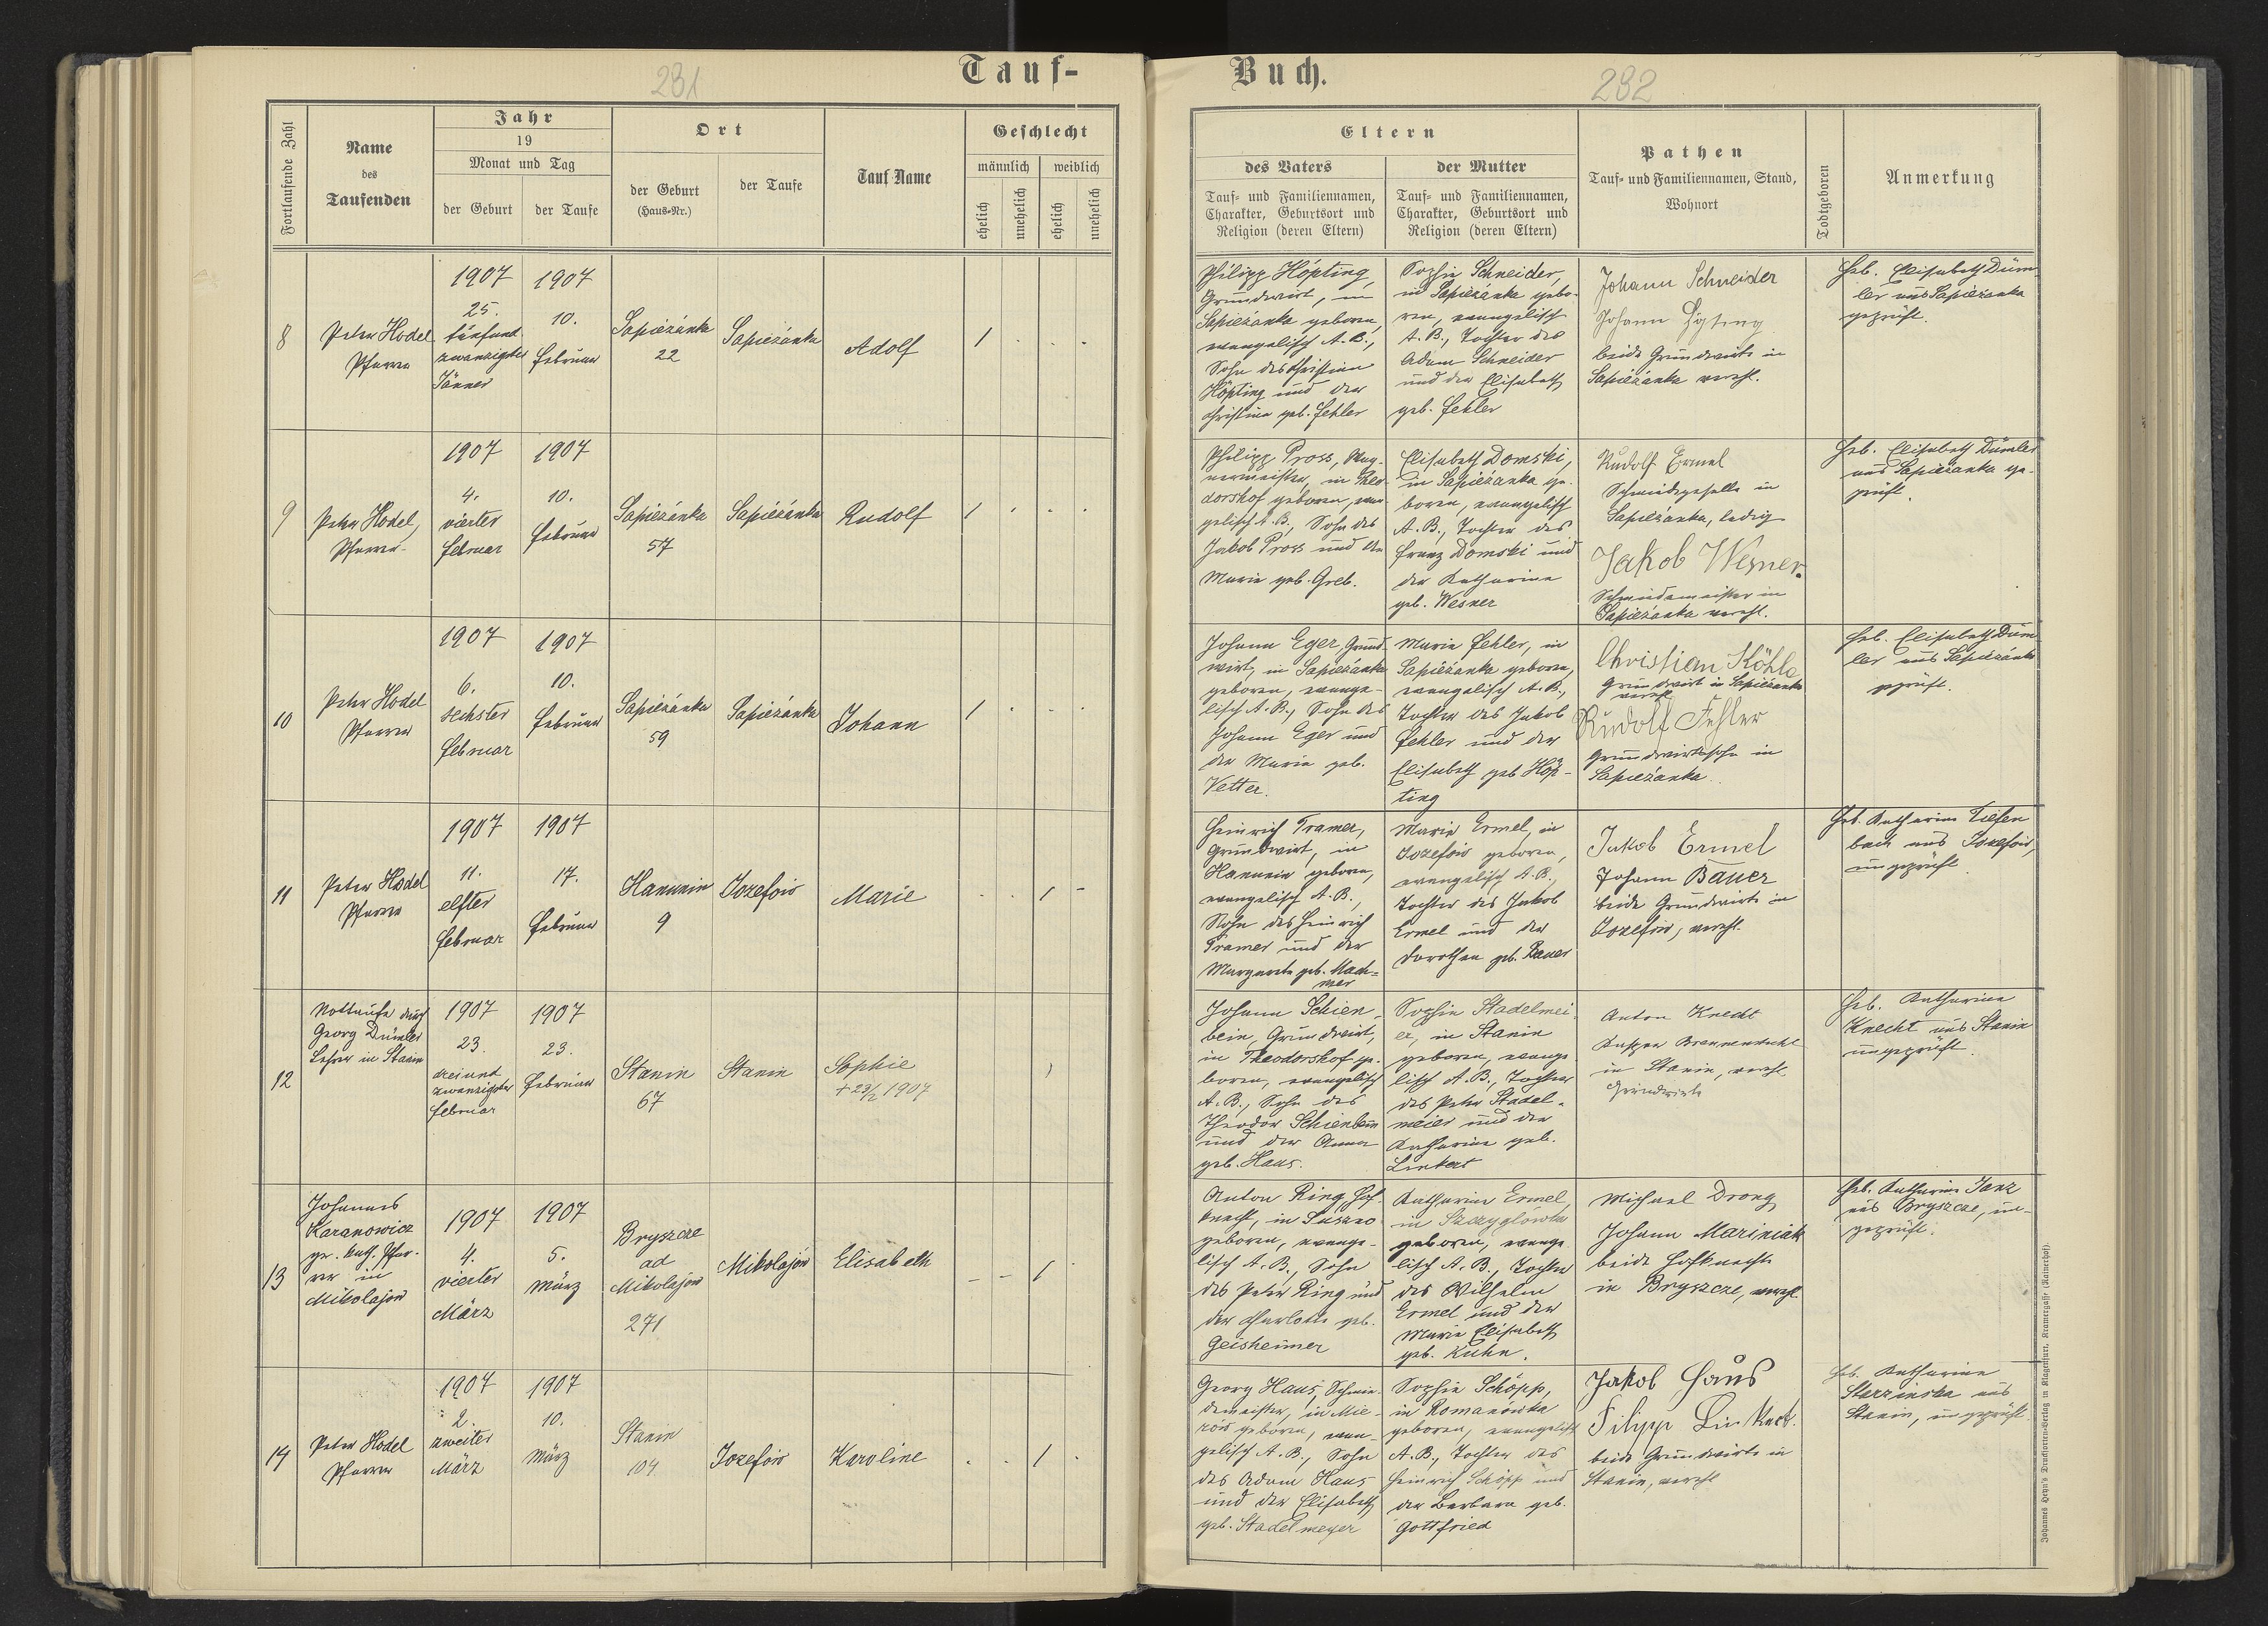 281
Tauf-
Fortlaufende Zahl
Name
des
Taufenden
Jahr
19
Monat und Tag
der Geburt
der Taufe
Ort
der Geburt
(Haus-Nr.)
der Taufe
Tauf Name
Geschlecht
männlich
weiblich
ehelich
unehelich
ehelich
unehelich
8
Peter Hodel
Pfarrer
1907
25.
fünfund
zwanzigster
Jänner
1907
10.
Februar
Sapieżanka
22
Sapieżanka
Adolf
1
9
Peter Hodel,
Pfarrer
1907
4.
vierter
Februar
1907
10.
Februar
Sapieżanka
57
Sapieżanka
Rudolf
1
10
Peter Hodel
Pfarrer
1907
6.
sechster
Februar
1907
10.
Februar
Sapieżanka
59
Sapieżanka
Johann
1
11
Peter Hodel
Pfarrer
1907
11.
elfter
Februar
1907
17.
Februar
Hanunin
9
Jozefów
Marie
1
12
Nottaufe durch
Georg Dümler
Lehrer in Stanin
1907
23.
dreiund
zwanzigster
Februar
1907
23.
Februar
Stanin
67
Stanin
Sophie
+ 23/2 1907
1
13
Johannes
Karanowicz
gr. kath. Pfar-
rer in
Mikolajow
1907
4.
vierter
März
1907
5.
März
Bryszcze
ad
Mikolajow
271
Mikolajow
Elisabeth
1
14
Peter Hodel
Pfarrer
1907
2.
zweiter
März
1907
10.
März
Stanin
104
Jozefów
Karoline
1
Buch.
282
Eltern
des Vaters
Tauf- und Familiennamen,
Charakter, Geburtsort und
Religion (deren Eltern)
der Mutter
Tauf- und Familiennamen,
Charakter, Geburtsort und
Religion (deren Eltern)
Pathen
Tauf- und Familiennamen, Stand,
Wohnort
Todtgeboren
Anmerkung
Philipp Höpting,
Grundwirt, in
Sapieżanka geboren,
evangelisch A. B.,
Sohn des Christian
Höpting und der
Christina geb. Fehler
Sophie Schneider,
in Sapieżanka gebo-
ren, evangelisch
A. B., Tochter des
Adam Schneider
und der Elisabeth
geb. Fehler
Johann Schneider
Johann Höpting
beide Grundwirte in
Sapieżanka verehl.
Heb. Elisabeth Düm-
ler aus Sapieżanka
geprüft.
Philipp Pross, Wag-
nermeister, in Theo-
dorshof geboren, evan-
gelisch A. B., Sohn des
Jakob Pross und der
Marie geb. Greb.
Elisabeth Domski,
in Sapieżanka ge-
boren, evangelisch
A. B., Tochter des
Franz Domski und
der Katharina
geb. Wesner
Rudolf Ermel
Schmiedgeselle in
Sapieżanka, ledig
Jakob Wesner.
Schmiedemeister in
Sapieżanka verehl.
Heb. Elisabeth Dümler
aus Sapieżanka ge-
prüft.
Johann Eger, Grund-
wirt, in Sapieżanka
geboren, evange-
lisch A. B., Sohn des
Johann Eger und
der Marie geb.
Vetter.
Marie Fehler, in
Sapieżanka geboren,
evangelisch A. B.,
Tochter des Jakob
Fehler und der
Elisabeth geb Höp-
ting
Christian Köhle
Grundwirt in Sapieżanka
verehl
Rudolf Fehler
Grundwirtssohn in
Sapieżanka.
Heb. Elisabeth Düm
ler aus Sapieżanka
geprüft.
Heinrich Tramer,
Grundwirt, in
Hanunin geboren,
evangelisch A. B.,
Sohn des Heinrich
Tramer und der
Margarete geb. Mach-
mer
Marie Ermel, in
Jozefów geboren,
evangelisch A. B.,
Tochter des Jakob
Ermel und der
Dorothea geb. Bauer
Jakob Ermel
Johann Bauer
beide Grundwirte in
Jozefów, verehl.
Heb. Katharina Tiefen
bach aus Jozefów,
ungeprüft.
Johann Schien-
bein, Grundwirt,
in Theodorshof ge-
boren, evangelisch
A. B., Sohn des
Theodor Schienbein
und der Anna
geb. Haus.
Sophie Stadelmei-
er, in Stanin
geboren, evange-
lisch A. B., Tochter
des Peter Stadel-
meier und der
Katharina geb.
Linkert
Anton Knecht
in Stanin, verehl
Grundwirte
Heb. Katharina
Knecht aus Stanin
ungeprüft.
Anton Ring Hof-
knecht, in Suszno
geboren, evange-
lisch A. B., Sohn
des Peter Ring und
der Charlotte geb.
Geisheimer
Katharina Ermel,
in Szczyglówka
geboren, evange-
lisch A. B., Tochter
des Wilhelm
Ermel und der
Marie Elisabeth
geb. Kuhn.
Michael Drong
Johann Mariniak
beide Hofknechte
in Bryszcze, verehl
Heb. Katharina Janz
aus Bryszcze, un-
geprüft.
Georg Haus, Schmie-
demeister, in Mie-
rów geboren, evan-
gelisch A. B., Sohn
des Adam Haus
und der Elisabeth
geb. Stadelmeyer
Sophie Schöpp,
in Romanówka
geboren, evangelisch
A. B., Tochter des
Heinrich Schöpp und
der Barbara geb.
Gottfried
Jakob Haus
Filipp Linkert.
beide Grundwirte in
Stanin, verehl
Heb. Katharina
Starzinska aus
Stanin, ungeprüft
Johannes Heyn's Drucksorten-Verlag in Klagenfurt, Kramergasse (Rainerhof).